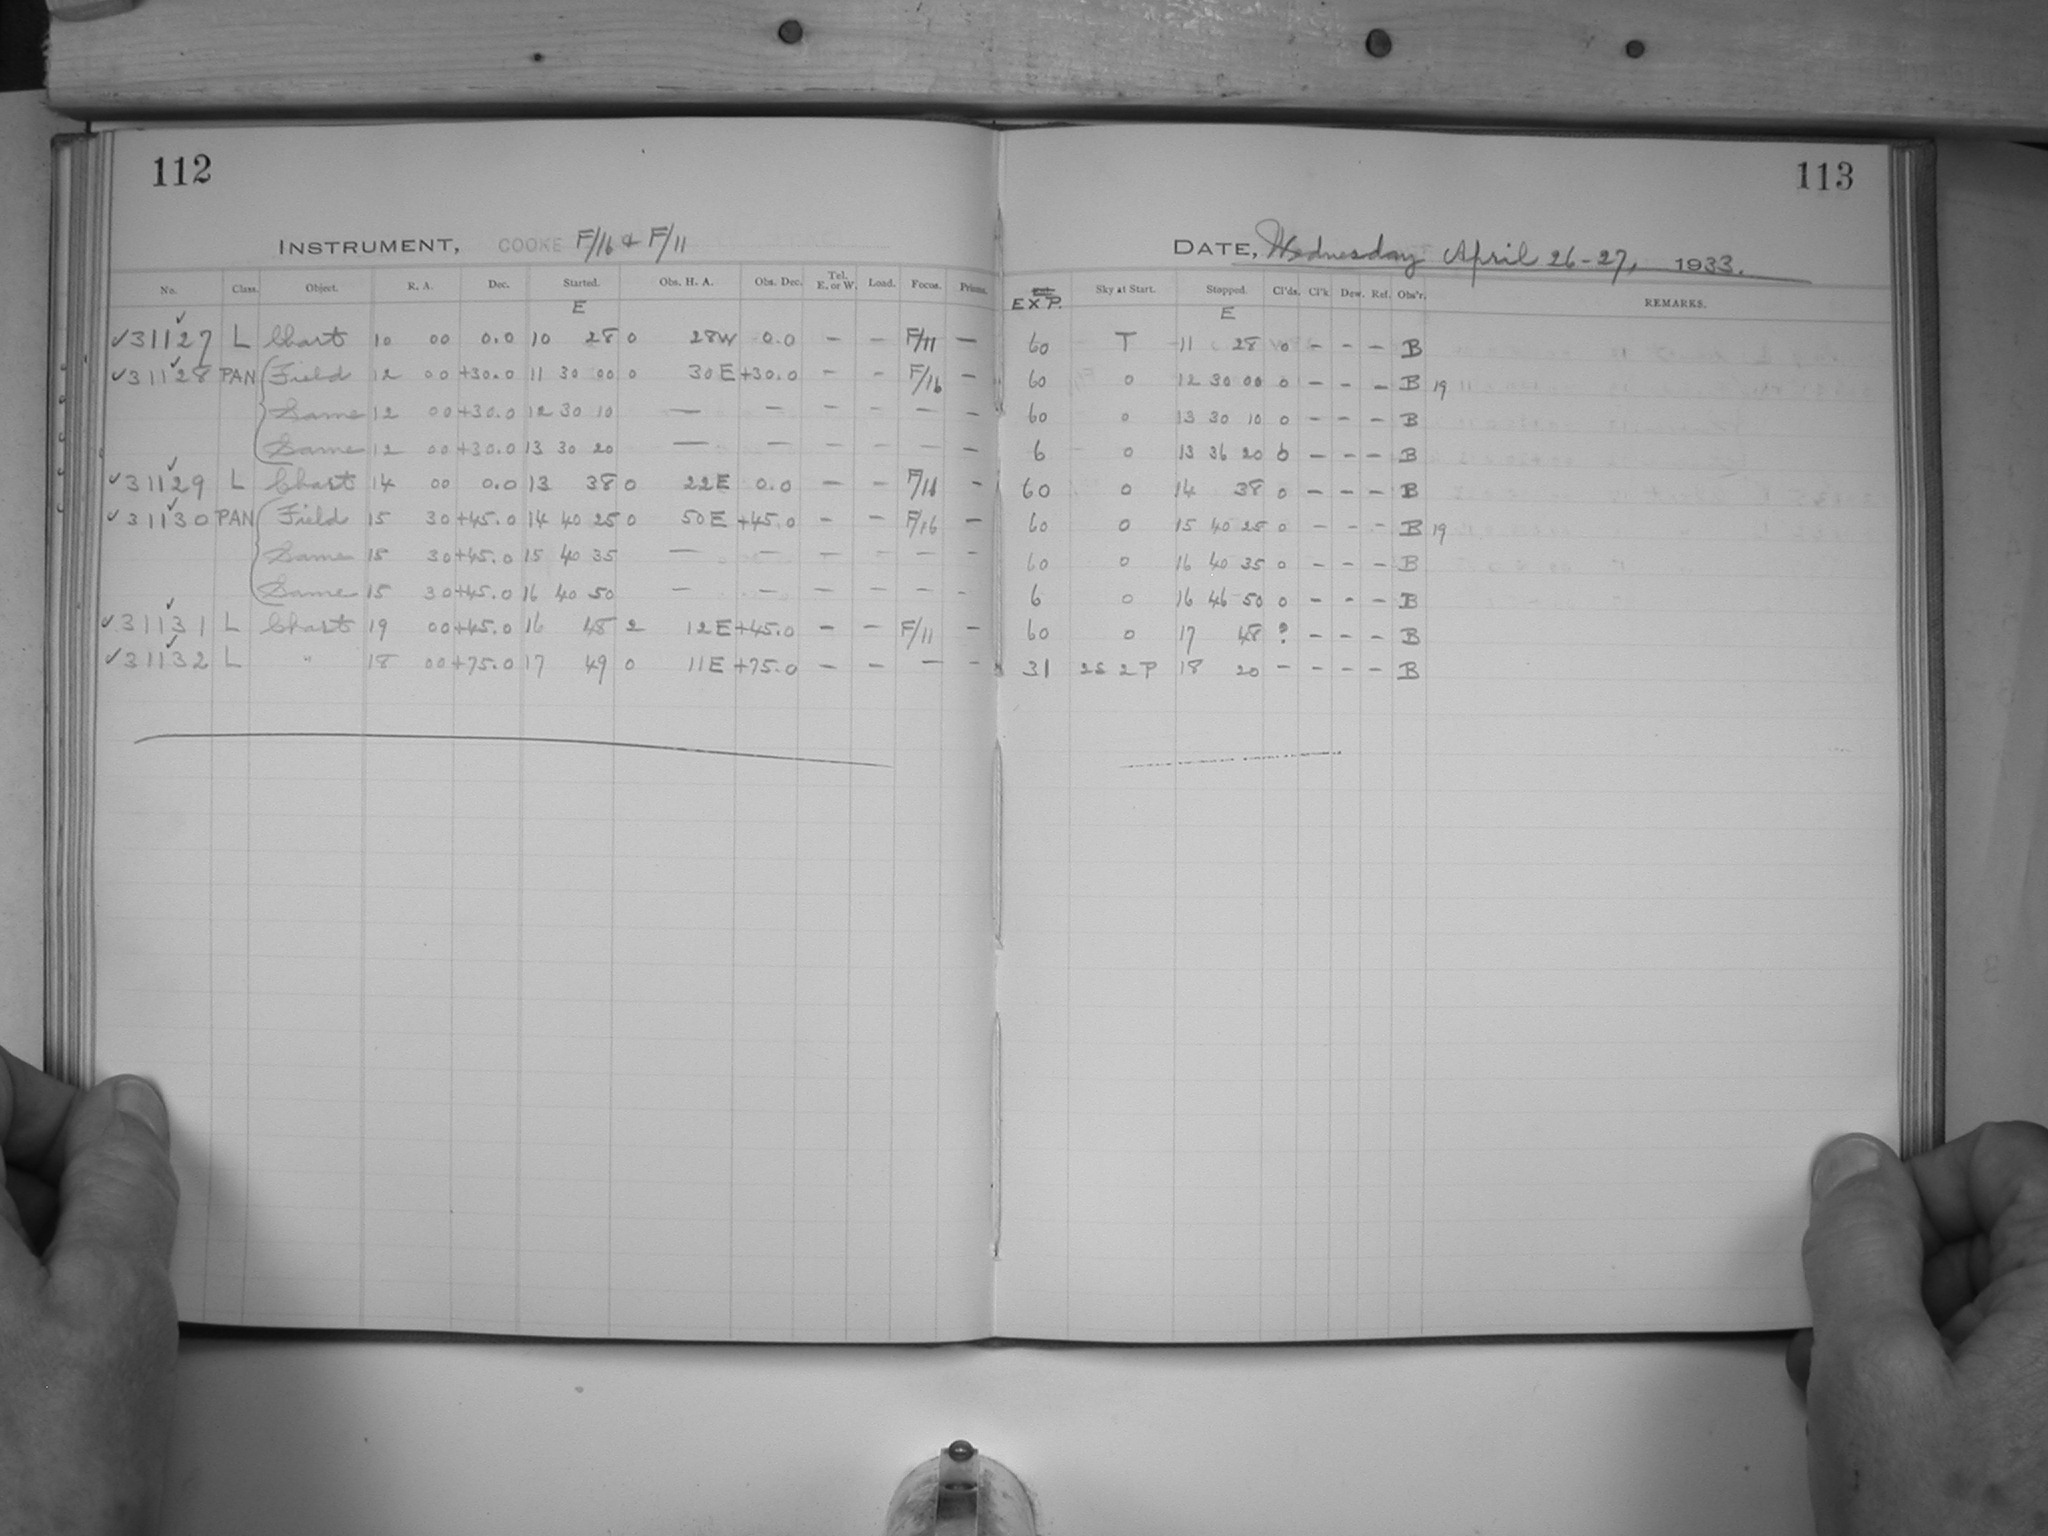 112
INSTRUMENT, COOKE F/16 & F/11
No. Class. Object. R. A. Dec. Started. Obs. H. A. Obs. Dec. Tel. E. or W. Load. Focus. Prisms.
E
✓31127 L Chart 10 00 0.0 10 28 0 28W 0.0 – – F/11 –
✓31128 PAN Field 12 00 +30.0 11 30 00 0 30E +30.0 – – F/16 –
Same 12 00 +30.0 12 30 10 — — – – — –
Same 12 00 +30.0 13 30 20 — — – – — –
✓31129 L Chart 14 00 0.0 13 38 0 22E 0.0 – – F/11 –
✓31130 PAN Field 15 30 +45.0 14 40 25 0 50E +45.0 – – F/16 –
Same 15 30 +45.0 15 40 35 — — – – — –
Same 15 30 +45.0 16 40 50 — — – – — –
✓31131 L Chart 19 00 +45.0 16 48 2 12E +45.0 – – F/11 –
✓31132 L " 18 00 +75.0 17 49 0 11E +75.0 – – — –
113
DATE, Wednesday April 26-27, 1933.
EXP. Sky at Start. Stopped. Cl'ds. Cl'k Dew. Ref. Obs'r. REMARKS.
E
60 T 11 28 0 – – – B
60 0 12 30 00 0 – – – B 19
60 0 13 30 10 0 – – – B
6 0 13 36 20 0 – – – B
60 0 14 38 0 – – – B
60 0 15 40 25 0 – – – B 19
60 0 16 40 35 0 – – – B
6 0 16 46 50 0 – – – B
60 0 17 48 ? – – – B
31 2S 2P 18 20 – – – – B